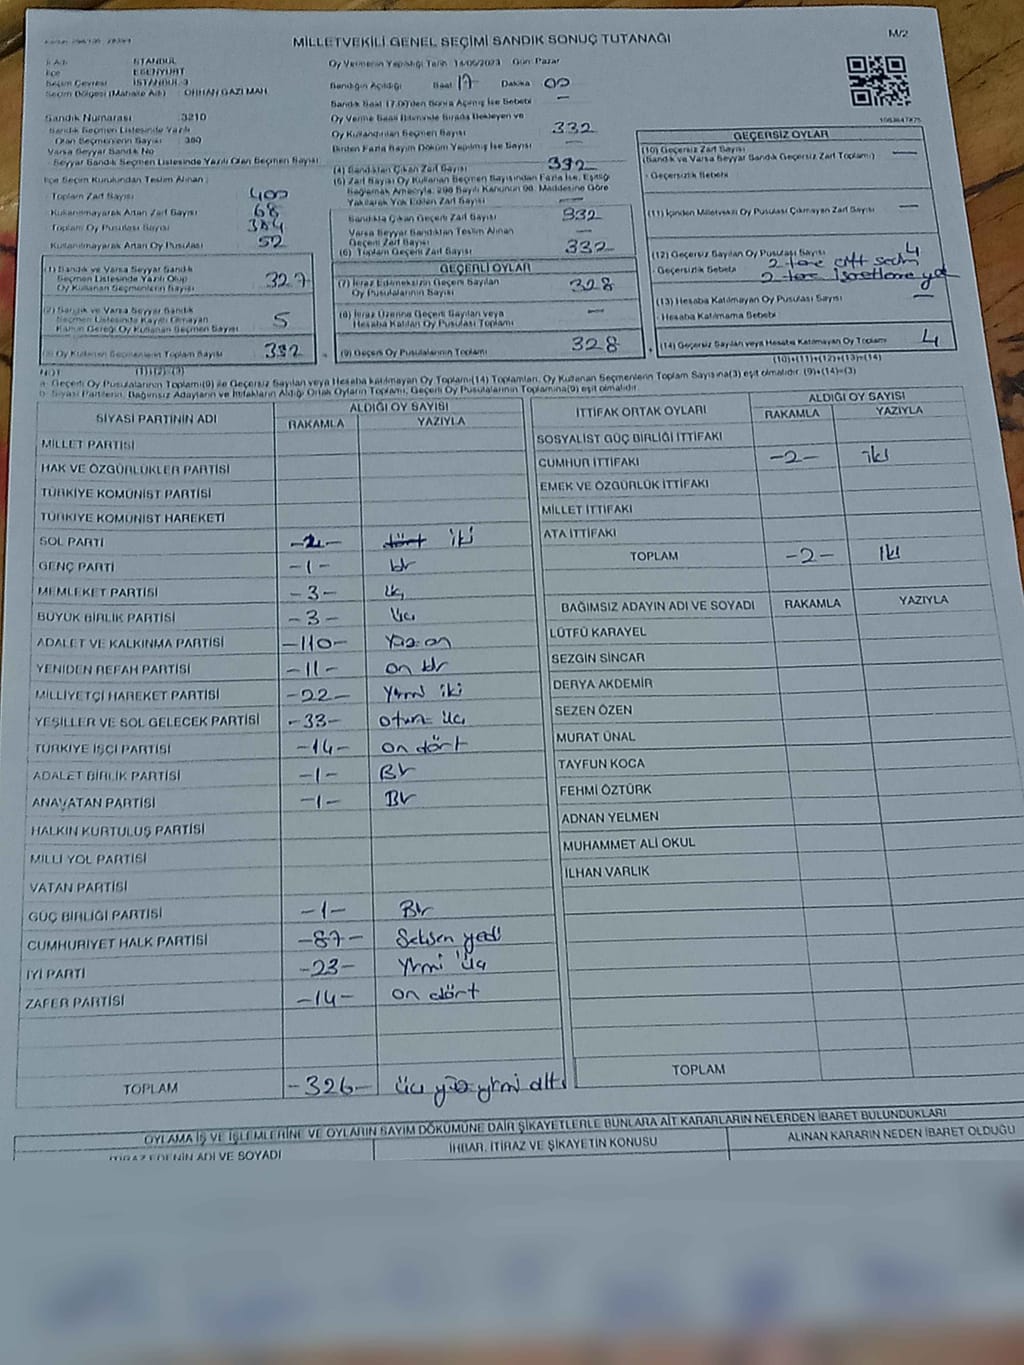 MİLLETVEKİLİ GENEL SEÇİMİ SANDIK SONUÇ TUTANAĞI
M/2
İl Adı İSTANBUL
İlçe ESENYURT
Seçim Çevresi İSTANBUL-3
Seçim Bölgesi (Mahalle Adı) ORHAN GAZİ MAH.
Sandık Numarası :3210
Sandık Seçmen Listesinde Yazılı
Olan Seçmenlerin Sayısı : 380
Varsa Seyyar Sandık No
Seyyar Sandık Seçmen Listesinde Yazılı Olan Seçmen Sayısı
İlçe Seçim Kurulundan Teslim Alınan :
Toplam Zarf Sayısı 400
Kullanılmayarak Artan Zarf Sayısı 68
Toplam Oy Pusulası Sayısı 384
Kullanılmayarak Artan Oy Pusulası 52
(1) Sandık ve Varsa Seyyar Sandık
Seçmen Listesinde Yazılı Olup
Oy Kullanan Seçmenlerin Sayısı 327
(2) Sandık ve Varsa Seyyar Sandık
Seçmen Listesinde Kayıtlı Olmayan
Kanun Gereği Oy Kullanan Seçmen Sayısı 5
(3) Oy Kullanan Seçmenlerin Toplam Sayısı 332
(1)+(2)=(3)
Oy Vermenin Yapıldığı Tarih 14/05/2023 Gün: Pazar
Sandığın Açıldığı Saat 17 Dakika 00
Sandık Saat 17.00'den Sonra Açılmış İse Sebebi —
Oy Verme Saati Bitiminde Sırada Bekleyen ve
Oy Kullandırılan Seçmen Sayısı 332
Birden Fazla Sayım Döküm Yapılmış İse Sayısı —
(4) Sandıktan Çıkan Zarf Sayısı 332
(5) Zarf Sayısı Oy Kullanan Seçmen Sayısından Fazla İse, Eşitliği
Sağlamak Amacıyla, 298 Sayılı Kanunun 98. Maddesine Göre
Yakılarak Yok Edilen Zarf Sayısı —
Sandıkta Çıkan Geçerli Zarf Sayısı 332
Varsa Seyyar Sandıktan Teslim Alınan
Geçerli Zarf Sayısı —
(6) Toplam Geçerli Zarf Sayısı 332
GEÇERLİ OYLAR
(7) İtiraz Edilmeksizin Geçerli Sayılan
Oy Pusulalarının Sayısı 328
(8) İtiraz Üzerine Geçerli Sayılan veya
Hesaba Katılan Oy Pusulası Toplamı —
(9) Geçerli Oy Pusulalarının Toplamı 328
GEÇERSİZ OYLAR
(10) Geçersiz Zarf Sayısı
(Sandık ve Varsa Seyyar Sandık Geçersiz Zarf Toplamı) —
- Geçersizlik Sebebi
(11) İçinden Milletvekili Oy Pusulası Çıkmayan Zarf Sayısı —
(12) Geçersiz Sayılan Oy Pusulası Sayısı 4
- Geçersizlik Sebebi 2 tane çift seçim
2 tane işaretleme yok
(13) Hesaba Katılmayan Oy Pusulası Sayısı —
- Hesaba Katılmama Sebebi
(14) Geçersiz Sayılan veya Hesaba Katılmayan Oy Toplamı 4
(10)+(11)+(12)+(13)=(14)
NOT
a- Geçerli Oy Pusulalarının Toplamı(9) ile Geçersiz Sayılan veya Hesaba katılmayan Oy Toplamı(14) Toplamları, Oy Kullanan Seçmenlerin Toplam Sayısına(3) eşit olmalıdır. (9)+(14)=(3)
b- Siyasi Partilerin, Bağımsız Adayların ve İttifakların Aldığı Ortak Oyların Toplamı, Geçerli Oy Pusulalarının Toplamına(9) eşit olmalıdır.
SİYASİ PARTİNİN ADI ALDIĞI OY SAYISI
RAKAMLA YAZIYLA
MİLLET PARTİSİ
HAK VE ÖZGÜRLÜKLER PARTİSİ
TÜRKİYE KOMÜNİST PARTİSİ
TÜRKİYE KOMÜNİST HAREKETİ
SOL PARTİ -2- dört iki
GENÇ PARTİ -1- bir
MEMLEKET PARTİSİ -3- üç
BÜYÜK BİRLİK PARTİSİ -3- üç
ADALET VE KALKINMA PARTİSİ -110- Yüz on
YENİDEN REFAH PARTİSİ -11- on bir
MİLLİYETÇİ HAREKET PARTİSİ -22- Yirmi iki
YEŞİLLER VE SOL GELECEK PARTİSİ -33- otuz üç
TÜRKİYE İŞÇİ PARTİSİ -14- on dört
ADALET BİRLİK PARTİSİ -1- Bir
ANAVATAN PARTİSİ -1- Bir
HALKIN KURTULUŞ PARTİSİ
MİLLİ YOL PARTİSİ
VATAN PARTİSİ
GÜÇ BİRLİĞİ PARTİSİ -1- Bir
CUMHURİYET HALK PARTİSİ -87- Seksen yedi
İYİ PARTİ -23- Yirmi üç
ZAFER PARTİSİ -14- on dört
TOPLAM -326- üç yüz yirmi altı
İTTİFAK ORTAK OYLARI ALDIĞI OY SAYISI
RAKAMLA YAZIYLA
SOSYALİST GÜÇ BİRLİĞİ İTTİFAKI
CUMHUR İTTİFAKI -2- iki
EMEK VE ÖZGÜRLÜK İTTİFAKI
MİLLET İTTİFAKI
ATA İTTİFAKI
TOPLAM -2- iki
BAĞIMSIZ ADAYIN ADI VE SOYADI RAKAMLA YAZIYLA
LÜTFÜ KARAYEL
SEZGİN SİNCAR
DERYA AKDEMİR
SEZEN ÖZEN
MURAT ÜNAL
TAYFUN KOCA
FEHMİ ÖZTÜRK
ADNAN YELMEN
MUHAMMET ALİ OKUL
İLHAN VARLIK
TOPLAM
OYLAMA İŞ VE İŞLEMLERİNE VE OYLARIN SAYIM DÖKÜMÜNE DAİR ŞİKAYETLERLE BUNLARA AİT KARARLARIN NELERDEN İBARET BULUNDUKLARI
İTİRAZ EDENİN ADI VE SOYADI İHBAR, İTİRAZ VE ŞİKAYETİN KONUSU ALINAN KARARIN NEDEN İBARET OLDUĞU